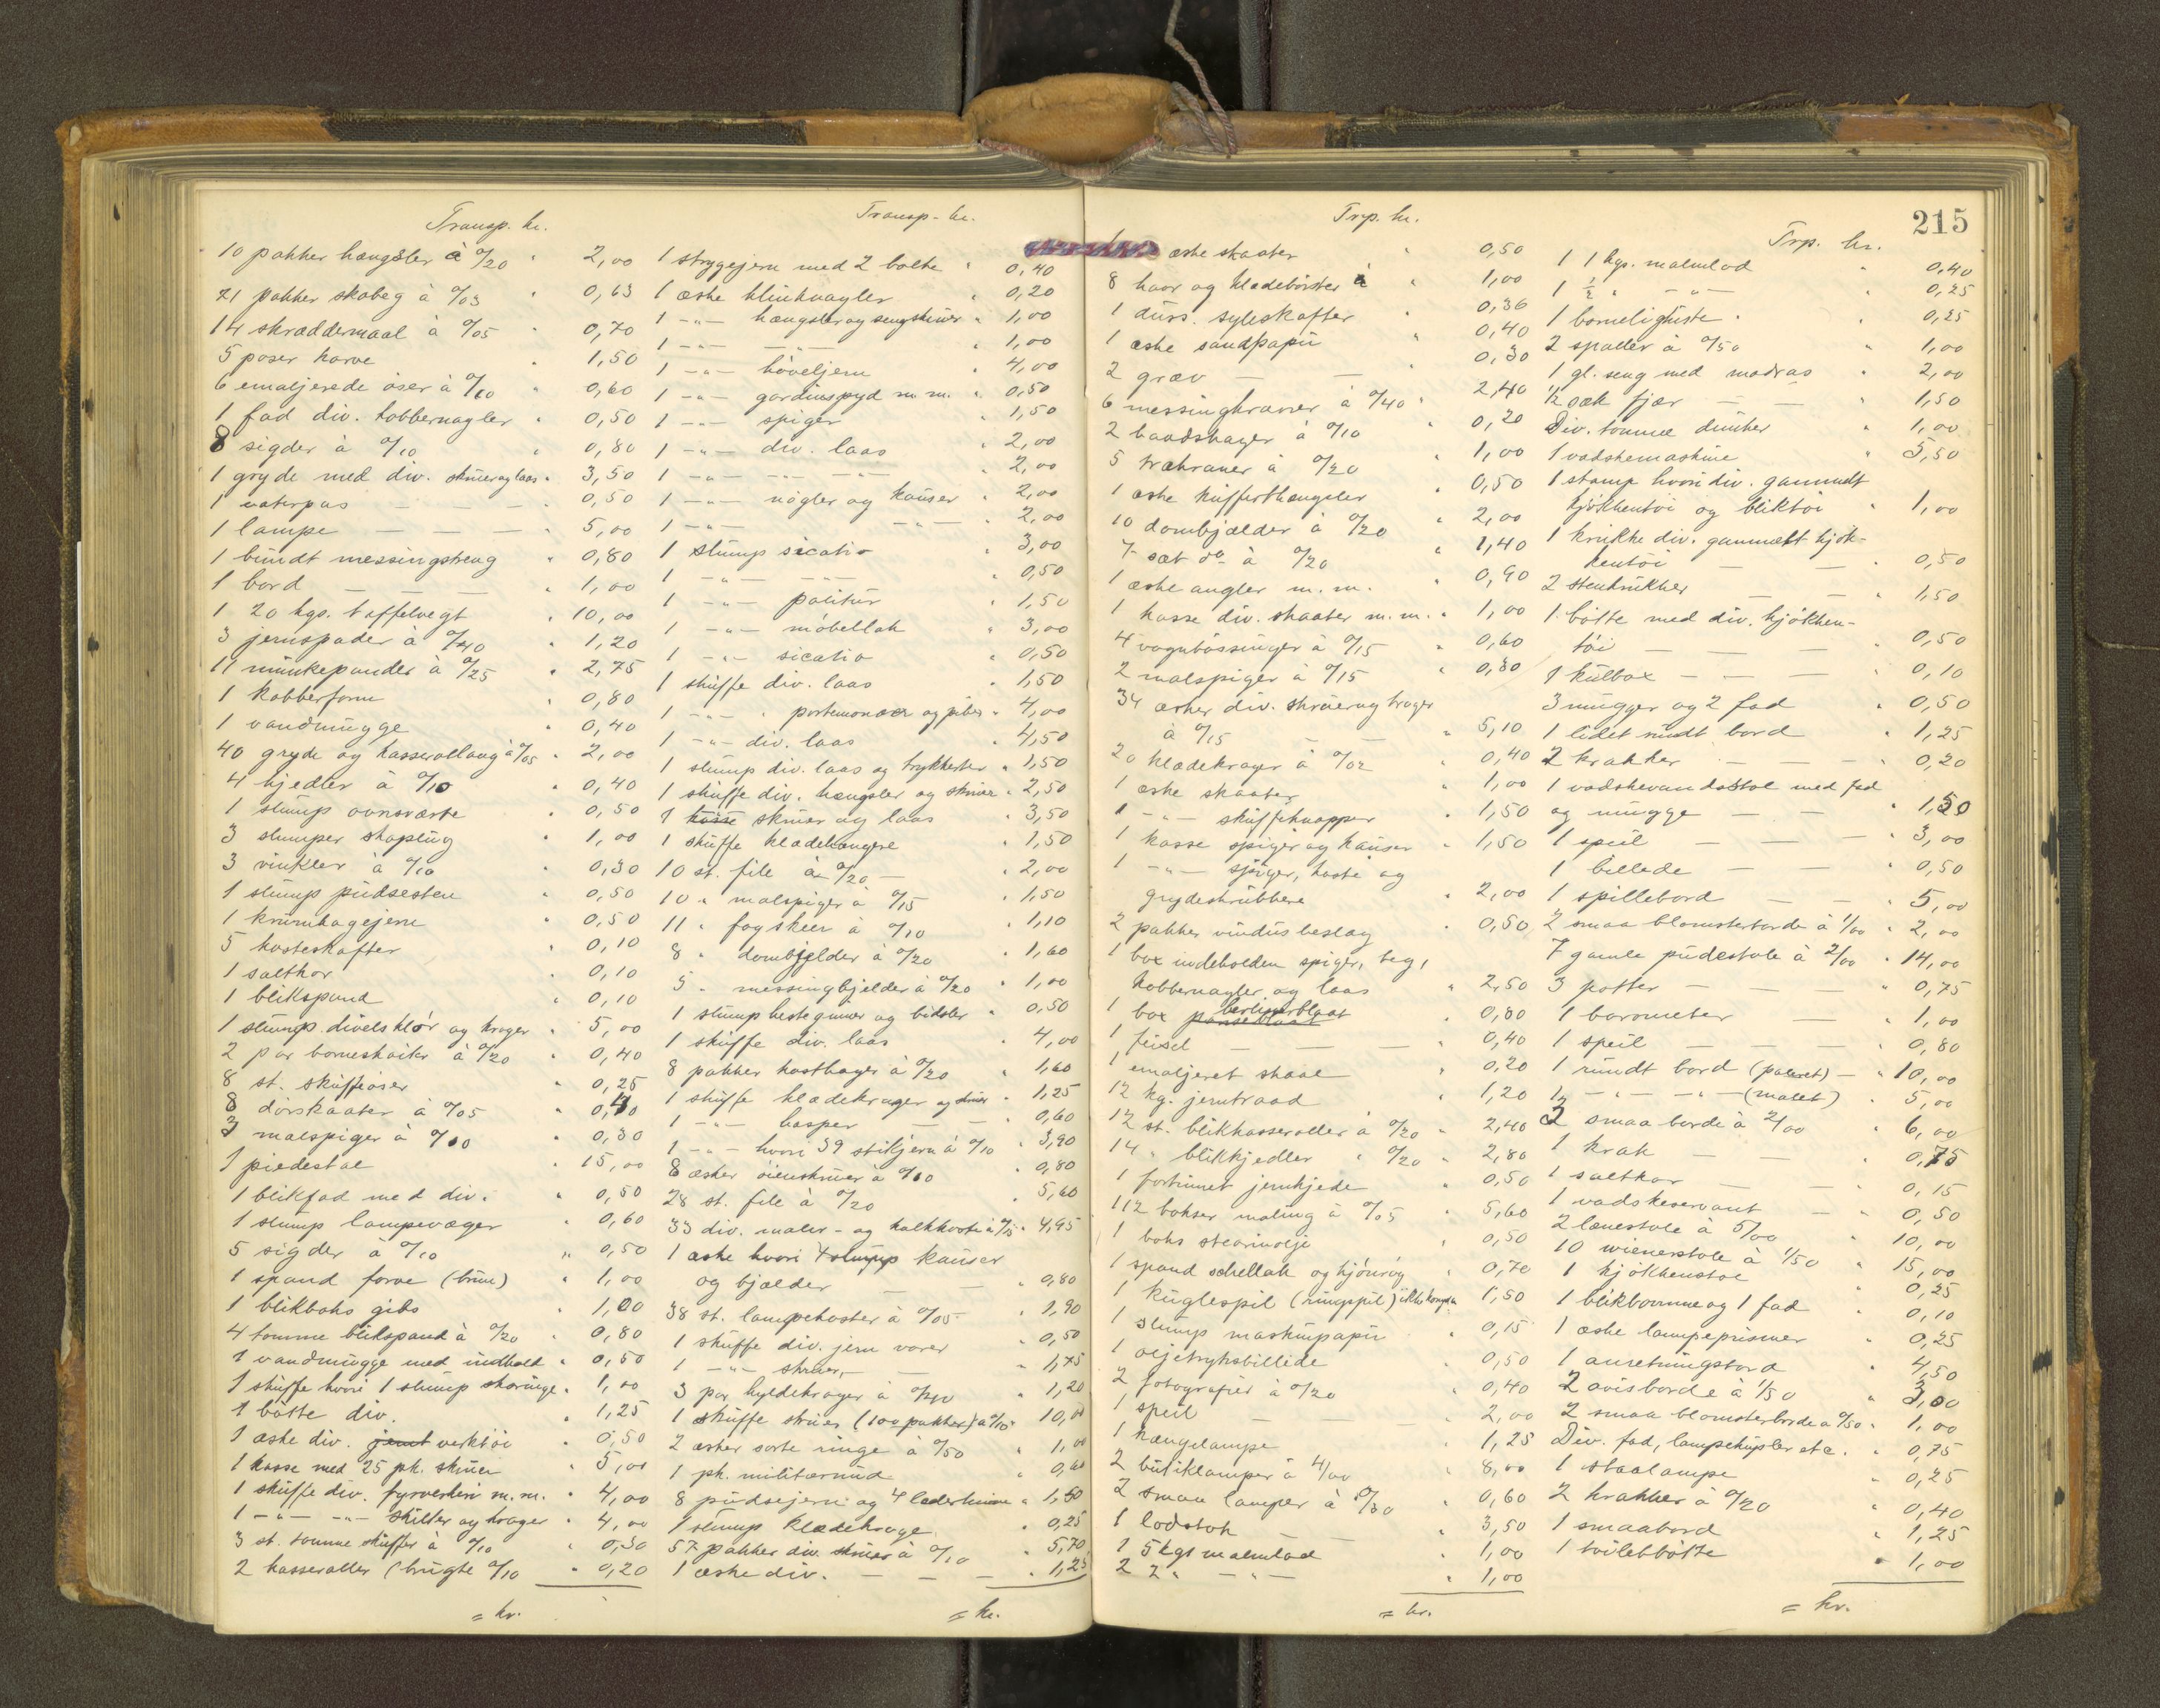 Transp. kr.
10 pakker hængsler à 0/20 " 2,00
21 pakker skobeg à 0/03 " 0,63
14 skræddermaal à 0/05 " 0,70
5 poser harve " 1,50
6 emaljerede öser à 0/10 " 0,60
1 fad div. kobbernagler " 0,50
8 sigder à 0/10 " 0,80
1 gryde med div. skruer og laas " 3,50
1 vaterpas — — — " 0,50
1 lampe — — — " 5,00
1 bundt messingstreng " 0,80
1 bord — — — " 1,00
1 20 kgs. taffelvegt " 10,00
3 jernspader à 0/40 " 1,20
11 munkepander à 0/25 " 2,75
1 kobberform " 0,80
1 vandmugge " 0,40
40 gryde og kasserollaag à 0/05 " 2,00
4 kjedler à 0/10 " 0,40
1 slump ovnsværte " 0,50
3 slumper skoplug " 1,00
3 vinkler à 0/10 " 0,30
1 slump pudsesten " 0,50
1 krumkagejern " 0,50
5 kosteskafter " 0,10
1 saltkar " 0,10
1 blikspand " 0,10
1 slump divelsklör og kroger " 5,00
2 par barneskoiter à 0/20 " 0,40
8 st. skuffeöser " 0,25
8 dörskaater à 0/05 " 0,40
3 malspiger à 0/10 " 0,30
1 piedestal " 15,00
1 blikfad med div. " 0,50
1 slump lampevæger " 0,60
5 sigder à 0/10 " 0,50
1 spand farve (brun) " 1,00
1 blikboks gibs " 1,00
4 tomme blikspand à 0/20 " 0,80
1 vandmugge med indhold " 0,50
1 skuffe hvori 1 slump skoringe " 1,00
1 bötte div. " 1,25
1 æske div. jernt verktöi " 0,50
1 kasse med 25 pk. skruer " 5,00
1 skuffe div. fyrverkeri m.m. " 4,00
1 —"— —"— skilter og kroger " 4,00
3 st. tomme skuffer à 0/10 " 0,30
2 kasseroller (brugte 0/10 " 0,20
= kr.
Transp. kr.
1 strygejern med 2 bolte " 0,40
1 æske klinknagler " 0,20
1 —"— hængsler og sengskruer " 1,00
1 —"— —"— " 1,00
1 —"— höveljern " 4,00
1 —"— gardinspyd m.m. " 0,50
1 —"— spiger " 1,50
1 —"— div. laas " 2,00
1 —"— —"— —"— " 2,00
1 —"— nögler og kauser " 2,00
1 —"— —"— " 2,00
1 slump sicativ " 3,00
1 —"— —"— " 0,50
1 —"— politur " 1,50
1 —"— möbellak " 3,00
1 —"— sicativ " 0,50
1 skuffe div. laas " 1,50
1 —"— " portemonær og piber " 4,00
1 —"— div. laas " 4,50
1 slump div. laas og trykkerter " 1,50
1 skuffe div. hængsler og skruer " 2,50
1 kasse skruer og laas " 3,50
1 skuffe klædehængere " 1,50
10 st. file à 0/20 — " 2,00
10 " malspiger à 0/15 " 1,50
11 " fogskeer à 0/10 " 1,10
8 " dombjelder à 0/20 " 1,60
5 " messingbjelder à 0/20 " 1,00
1 slump hestegummer og bidsler " 0,50
1 skuffe div. laas " 4,00
8 pakker hasthager à 0/20 " 1,60
1 skuffe klædekroger og skruer " 1,25
1 —"— hasper — — " 0,60
1 —"— hvori 39 stikjern à 0/10 " 3,90
8 æsker öienskruer à 0/10 " 0,80
28 st. file à 0/20 " 5,60
33 div. maler- og kalkkoste à 0/15 " 4,95
1 æske hvori 1 slump kauser
og bjælder — — " 0,80
38 st. lampekoster à 0/05 " 1,90
1 skuffe div. jern varer " 0,50
1 —"— skruer, — " 1,75
3 par hyldekroger à 0/40 " 1,20
1 skuffe skruer (100 pakker) à 0/10 " 10,00
2 æsker sorte ringe à 0/50 " 1,00
1 pk. militærnud " 0,60
8 pudsejern og 4 læderhuner " 1,50
1 slump klædekroge " 0,25
57 pakker div. skruer à 0/10 " 5,70
1 æske div. — — — " 1,25
= kr.
215
Trp. kr.
æske skaater " 0,50
8 haar og klædebörster à " 1,00
1 dus. syleskafter " 0,36
1 æske sandpapir " 0,40
2 græv — — " 0,30
6 messingkraner à 0/40 " 2,40
2 baadshager à 0/10 " 0,20
5 trækraner à 0/20 " 1,00
1 æske kufferthængsler " 0,50
10 dombjælder à 0/20 " 2,00
7 sæt do à 0/20 " 1,40
1 æske angler m.m. " 0,90
1 kasse div. skaater m.m. " 1,00
4 vognbössinger à 0/15 " 0,60
2 malspiger à 0/15 " 0,30
34 æsker div. skruer og kroger
à 0/15 — — " 5,10
20 klædekroger à 0/02 " 0,40
1 æske skaater " 1,00
1 —"— skuffeknapper " 1,50
1 kasse spiger og kauser " 1,50
1 —"— spiger, koste og
grydeskrubbere " 2,00
2 pakker vindusbeslag " 0,50
1 box indeholden spiger, beg,
kobbernagler og laas " 2,50
1 box pariserblaat berlinerblaat " 0,80
1 feisel — — — " 0,40
1 emaljeret skaal " 0,20
12 kg. jerntraad " 1,20
12 st. blikkasseroller à 0/20 " 2,40
14 " blikkjedler " 0/20 " 2,80
1 fortinnet jernkjede " 0,50
112 bokser maling à 0/05 " 5,60
1 boks stearinolje " 0,50
1 spand schellak og kjönrög " 0,70
1 kuglespil (ringspil) 1,50
1 slump maskinpapir " 0,15
1 oljetryksbillide " 0,50
2 fotografier à 0/20 " 0,40
1 speil — — " 2,00
1 hængelampe " 1,25
2 butiklamper à 4/00 " 8,00
2 smaa lamper à 0/30 " 0,60
1 lodstok — — " 3,50
1 5 kgs malmlod " 1,00
2 2 " —"— " 1,00
= kr.
Trp. kr.
1 1 kgs. malmlod " 0,40
1 ½ " —"— " 0,25
1 barneligkiste " " 0,25
2 spaller à 0/50 " 1,00
1 gl. seng med madras " 2,00
½ sæk fjær — — " 1,50
Div. tomme dunker " 1,00
1 vadskemaskine " 5,50
1 stamp hvori div. gammelt
kjökkentöi og bliktöi " 1,00
1 krukke div. gammelt kjök-
kentöi — — " 0,50
2 stenkrukker — — " 1,50
1 bötte med div. kjökken-
töi — — — " 0,50
1 kulbox — — — " 0,10
3 mugger og 2 fad " 0,50
1 lidet rundt bord " 1,25
2 krakker — — — " 0,20
1 vadskevandsstol med fad
og mugge — — " 1,50
1 speil — — — " 3,00
1 billede — — " 0,50
1 spillebord — — " 5,00
2 smaa blomsterborde à 1/00 " 2,00
7 gamle pudestole à 2/00 " 14,00
3 potter — — — " 0,75
1 barometer — " 1,00
1 speil — — — " 0,80
1 rundt bord (poleret) — " 10,00
1 —"— —"— (malet) " 5,00
3 smaa borde à 2/00 " 6,00
1 krak — — " 0,75
1 saltkar — — " 0,15
1 vadskeservant — " 0,50
2 lænestole à 5/00 " 10,00
10 wienerstole à 1/50 " 15,00
1 kjökkenstol " 0,25
1 blikkomme og 1 fad " 0,10
1 æske lampeprismer " 0,25
1 anretningsbord " 4,50
2 avisborde à 1/50 " 3,00
2 smaa blomsterborde à 0/50 " 1,00
Div. fad, lampekupler etc. " 0,75
1 staalampe " 0,25
2 krakker à 0/20 " 0,40
1 smaabord " 1,25
1 toiletbötte " 1,00
= kr.